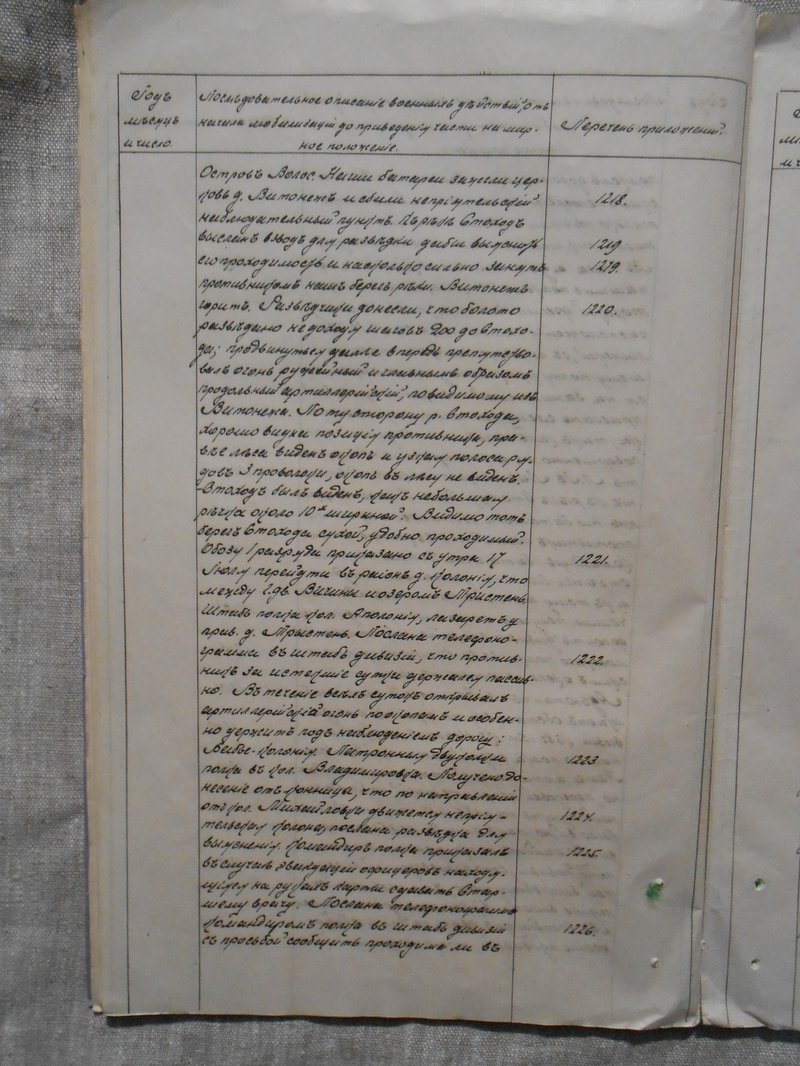 Годъ
мѣсяцъ
и число.
Последовательное описанiе военныхъ дѣйствiй отъ
начала мобилизацiи до приведенiя части на мир-
ное положенiе.
Перечень приложенiй.
Островъ Волос. Наши батареи зажгли цер-
ковь д. Витонежъ и сбили непрiятельскiй
1218.
наблюдательный пунктъ. Къ рѣкѣ Стоходъ
высланъ взводъ для развѣдки дабы выяснить
1219
его проходимость и насколько сильно занятъ
1219.
противникомъ нашъ берегъ рѣки. Витонежъ
горитъ. Развѣдчики донесли, что болото
1220.
развѣдано не доходя шаговъ 200 до Стохо-
да; продвинуться далее впередъ препятство-
валъ огонь ружейный и главнымъ образомъ
продольный артиллерiйскiй, повидимому изъ
Витонежа. По ту сторону р. Стохода,
хорошо видна позицiя противника, пра-
вѣе лѣса виденъ окопъ и узкая полоса ря-
довъ 3 проволоки, окопъ въ лѣсу не виденъ.
Стоходъ былъ виденъ, какъ небольшая
рѣчка около 10х шириной. Видимо тотъ
берегъ Стохода сухой, удобно проходимый.
Обозу 1 разряда приказано съ утра 17
1221.
Iюля перейти въ районъ д. Колонiя, что
между г. дв. Вичины и озеромъ Тристень,
Штабъ полка кол. Аполонiя, лазаретъ у
прив. д. Трыстень. Послана телефоно-
грамма въ штабъ дивизiи, что против-
1222.
никъ за истекшiе сутки держался пассив-
но. Въ теченiе всѣхъ сутокъ открывалъ
артиллерiйскiй огонь по окопамъ и особен-
но держитъ подъ наблюденiемъ дорогу:
Бабье-Колонiя. Патронныя двуколки
1223
полка въ кол. Владимировка. Получено до-
несенiе отъ конницы, что по направленiю
отъ кол. Михайловки движется непрiя-
1224.
тельская колона, послана развѣдка для
выясненiя. Командиръ полка приказалъ
1225.
въ случаѣ эвакуацiи офицеровъ находя-
щiяся на рукахъ карты сдавать Стар-
шему врачу. Послана телефонограмма
Командиромъ полка въ штабъ дивизiи
1226.
съ просьбой сообщить проходима ли въ